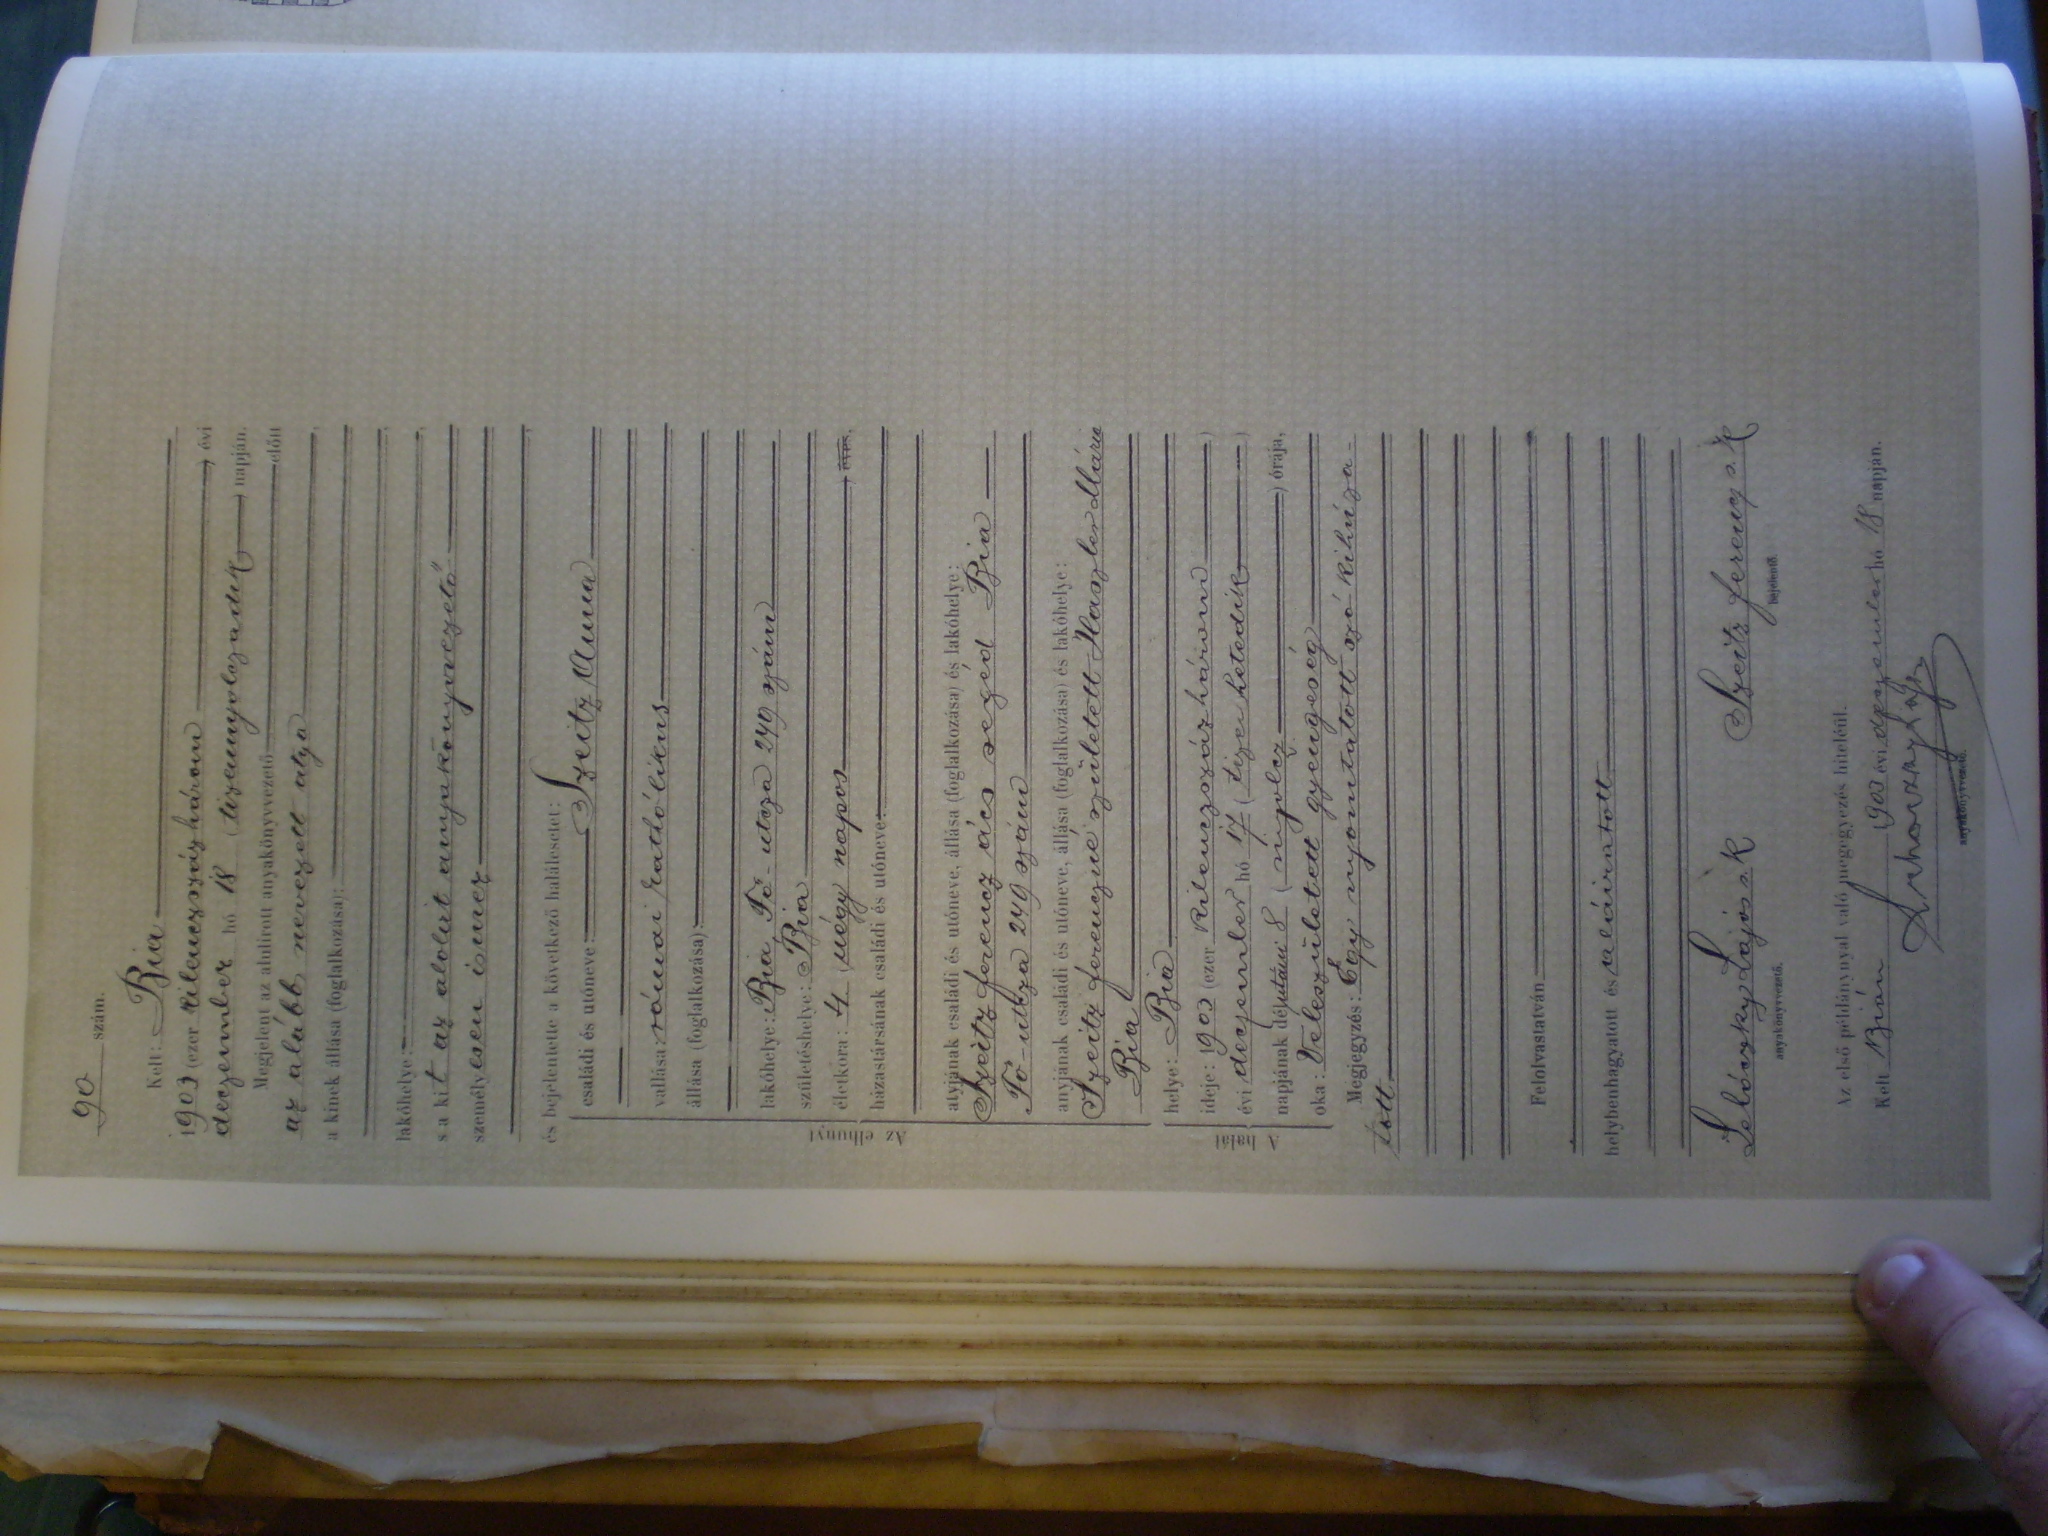 90 szám.
Kelt: Bia
1903 (ezer kilenczszázhárom) évi
deczember hó 18 (tizennyolczadik) napján.
Megjelent az alulírott anyakönyvvezető előtt
az alább nevezett atya
a kinek állása (foglalkozása):
lakóhelye:
s a kit az alolirt anyakönyvvezető
személyesen ismer
és bejelentette a következő halálesetet:
Az elhunyt
családi és utóneve: Szeitz Anna
vallása: római katholikus
állása (foglalkozása):
lakóhelye: Bia Fő-utcza 249 szám
születéshelye: Bia
életkora: 4 (négy napos) éves,
házastársának családi és utóneve:
atyjának családi és utóneve, állása (foglalkozása) és lakóhelye:
Szeitz ferencz ács segéd Bia
Fő-utcza 249 szám
anyjának családi és utóneve, állása (foglalkozása) és lakóhelye:
Szeitz ferenczné született Haszler Mária
Bia
A halál
helye: Bia
ideje: 1903 (ezer kilenczszázhárom)
évi deczember hó 17 (tizenhetedik)
napjának délutáni 8 (nyolcz) órája,
oka: Veleszületett gyengeség
Megjegyzés: Egy nyomtatott szó kihúza-
tott
Felolvastatván
helybenhagyatott és aláiratott
Lajos s.k Szeitz ferencz s.k
anyakönyvvezető. bejelentő.
Az első példánynyal való megegyezés hiteléül.
Kelt Bián 1903 évi deczember hó 18 napján.
anyakönyvvezető.